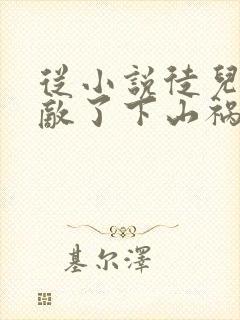 從小說徒兒
敵了下山禍
基尔澤